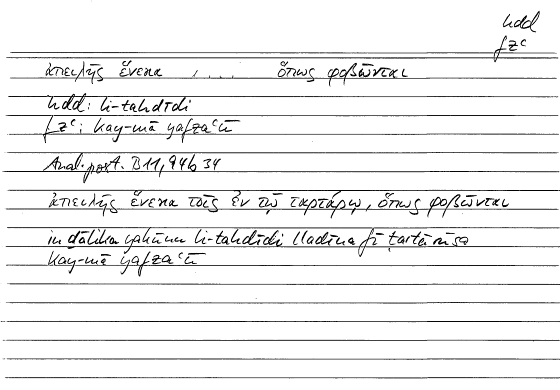 hdd
fzʿ
ἀπειλῆς ἕνεκα , ... ὅπως φοβῶνται
hdd: li-tahdīdi
fzʿ: kay-mā yafzaʿū
Anal. post. B 11, 94b 34
ἀπειλῆς ἕνεκα τοῖς ἐν τῷ ταρτάρῳ, ὅπως φοβῶνται
in ḏālika yakūnu li-tahdīdi lladīna fī ṭarṭārūsa
kay-mā yafzaʿū